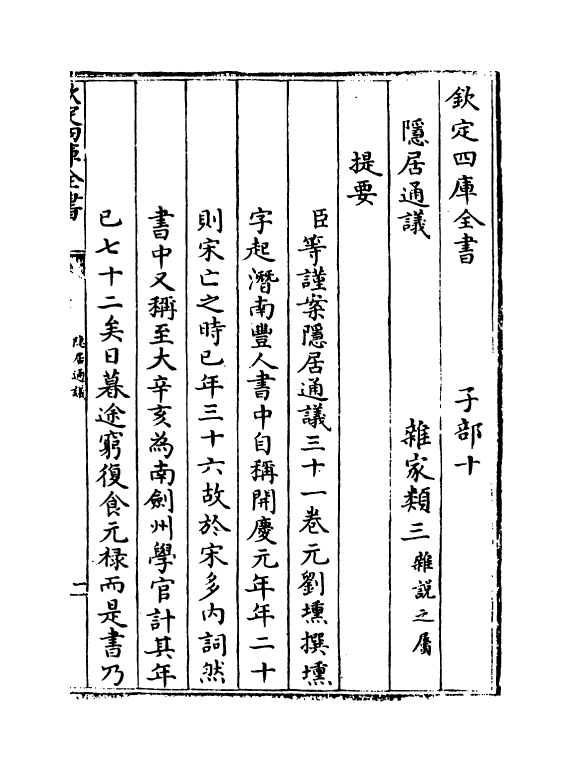 欽定四庫全書 子部十
隱居通議 雜家類三 雜説之屬
提要
臣等謹案隱居通議三十一卷元劉壎撰壎
字起潛南豐人書中自稱開慶元年年二十
則宋亡之時已年三十六故於宋多内詞然
書中又稱至大辛亥為南劍州學官計其年
已七十二矣日暮途窮復食元禄而是書乃
欽定四庫全書
隱居通議